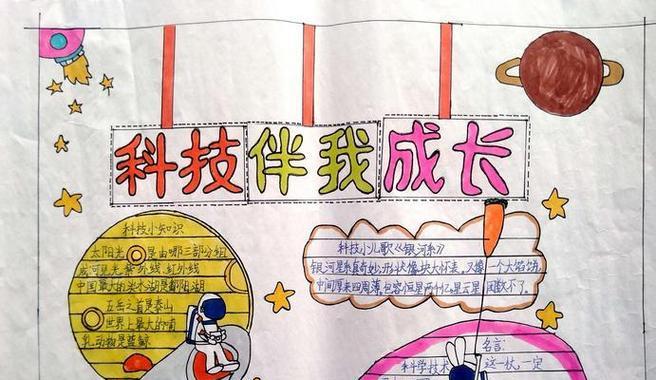 科技伴我成长
科技小知识
太阳光 是由哪三部分组
成可见光.紫外线.红外线
中国最大的淡水湖是鄱阳湖
五岳之首是泰山
世界上最大的哺
乳动物是蓝鲸
科技小儿歌《银河系》
银河星系真奇妙.形状像块大材表,又像一个大烙饼,
中间厚来四周薄,包容恒星两千亿.星云星 因数不了。
名言:
科学技术 这一杖,一定